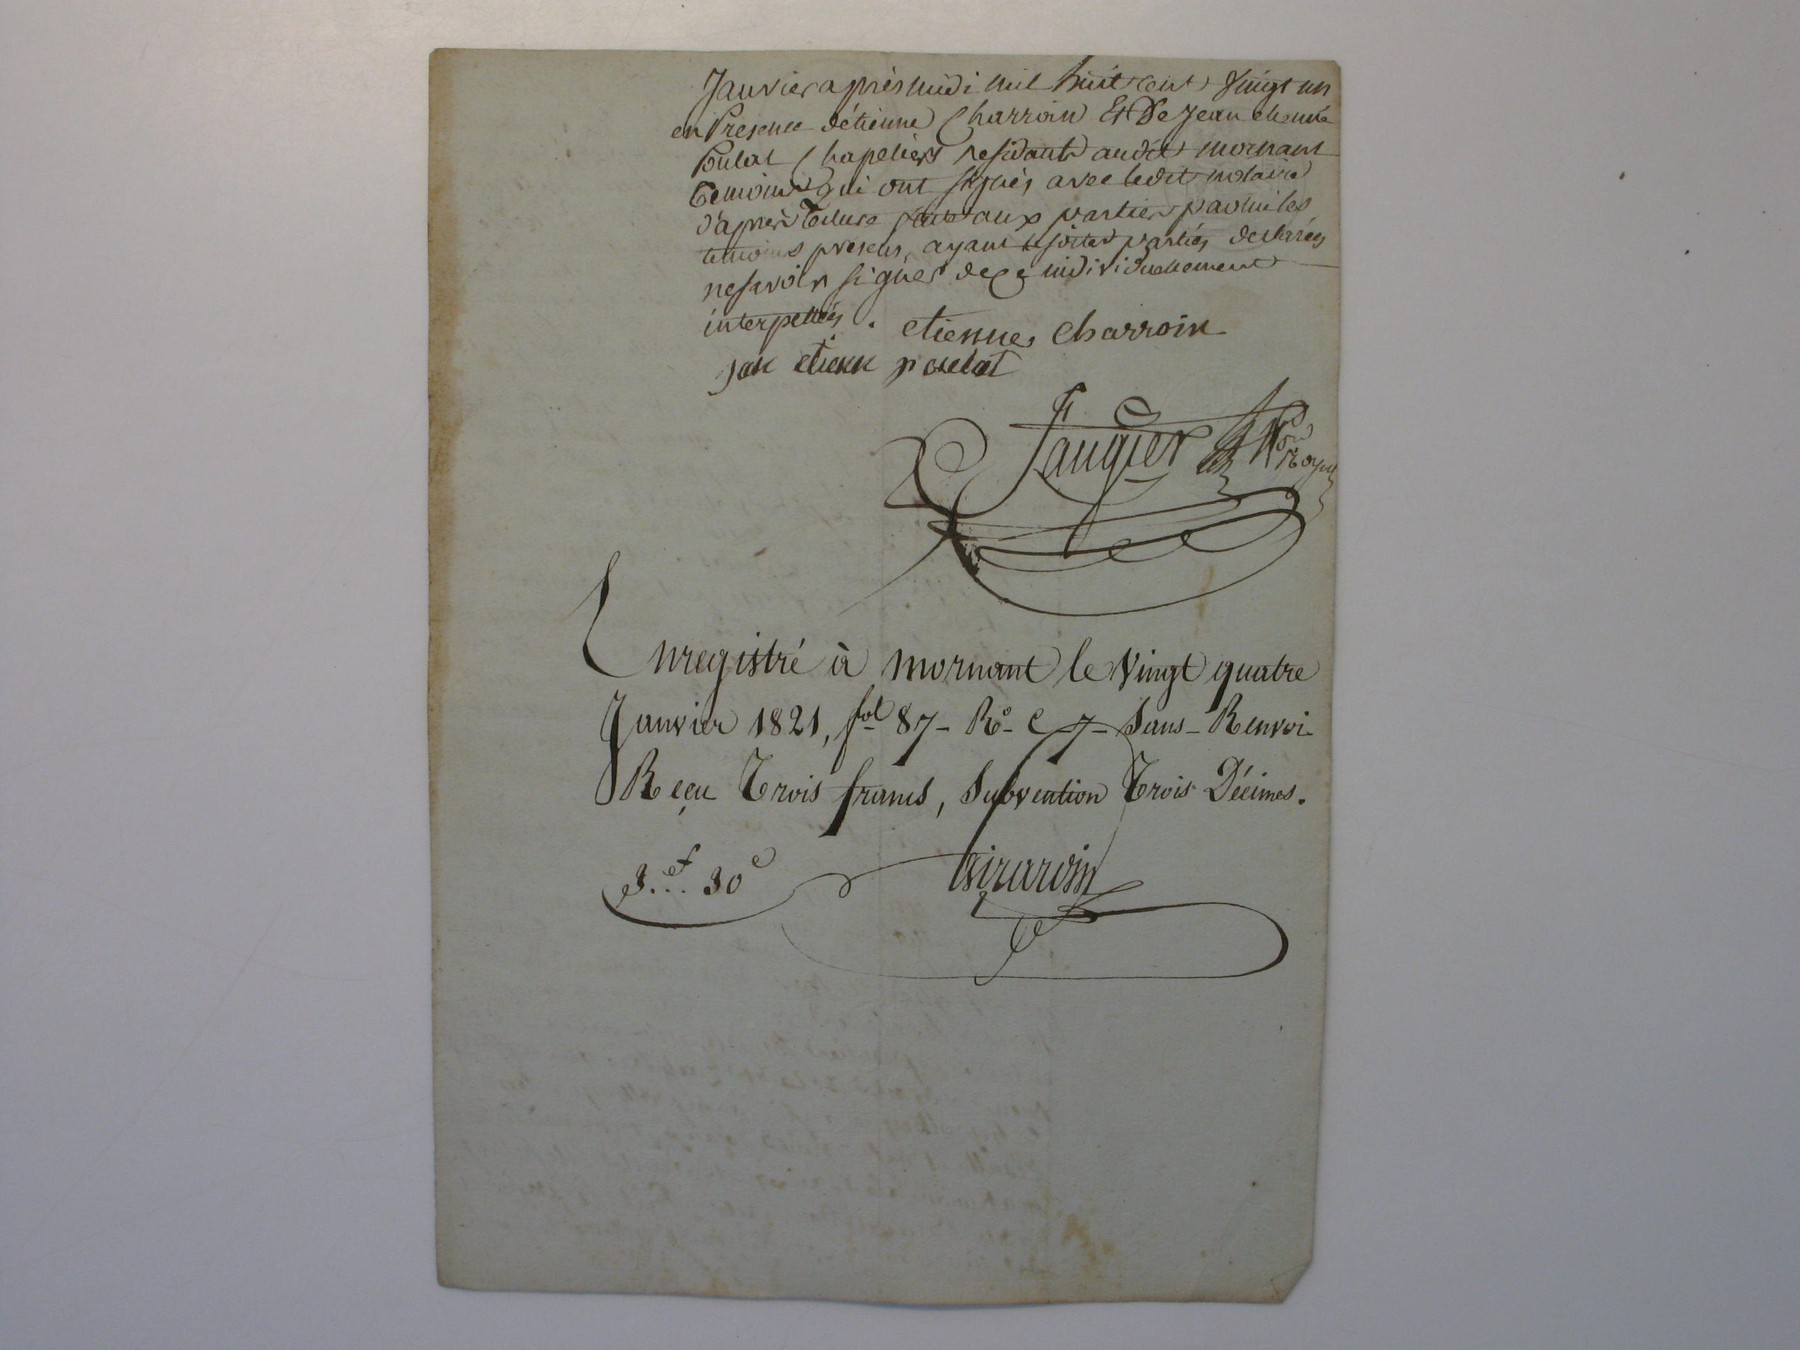 Janvier après midi mil huit cent vingt un
en Presence d'étienne Charroin Et De Jean etienne
Poulat Chapeliers residants audit mornant
temoins qui ont signés avec ledit notaire
d'après lecture faite aux parties parmi les
temoins presens, ayant lesdites parties declarées
ne savoir signer de ce individuellement
interpellées. etienne Charroin
jan etienn poulat
Faugier Nre Royal
Enregistré à mornant le vingt quatre
Janvier 1821, fol 87 - Ro - C 7 - Sans - Renvoi
Reçu Trois francs, Subvention Trois Décimes.
3..f 30c Girardin